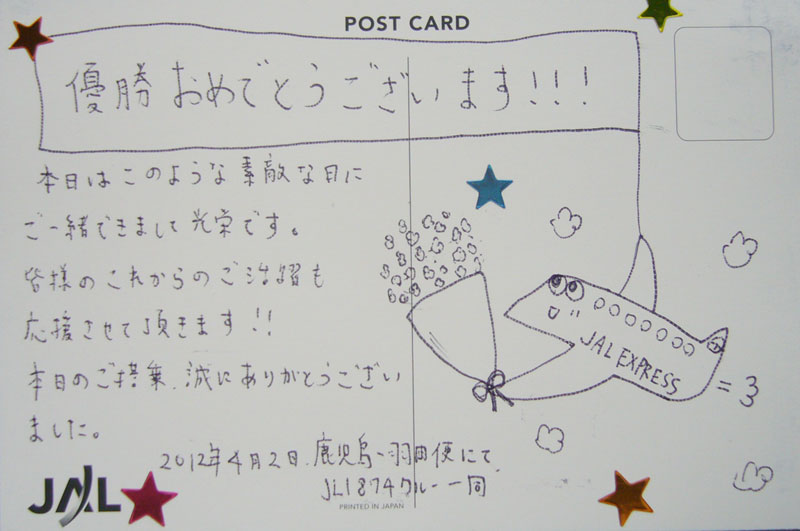 POST CARD
優勝おめでとうございます!!!
本日はこのような素敵な日に
ご一緒できまして光栄です。
皆様のこれからのご活躍も
応援させて頂きます!!
本日のご搭乗、誠にありがとうござい
ました。
JAL EXPRESS
=3
2012年4月2日、鹿児島-羽田便にて、
JL1874クルー一同
JAL
PRINTED IN JAPAN